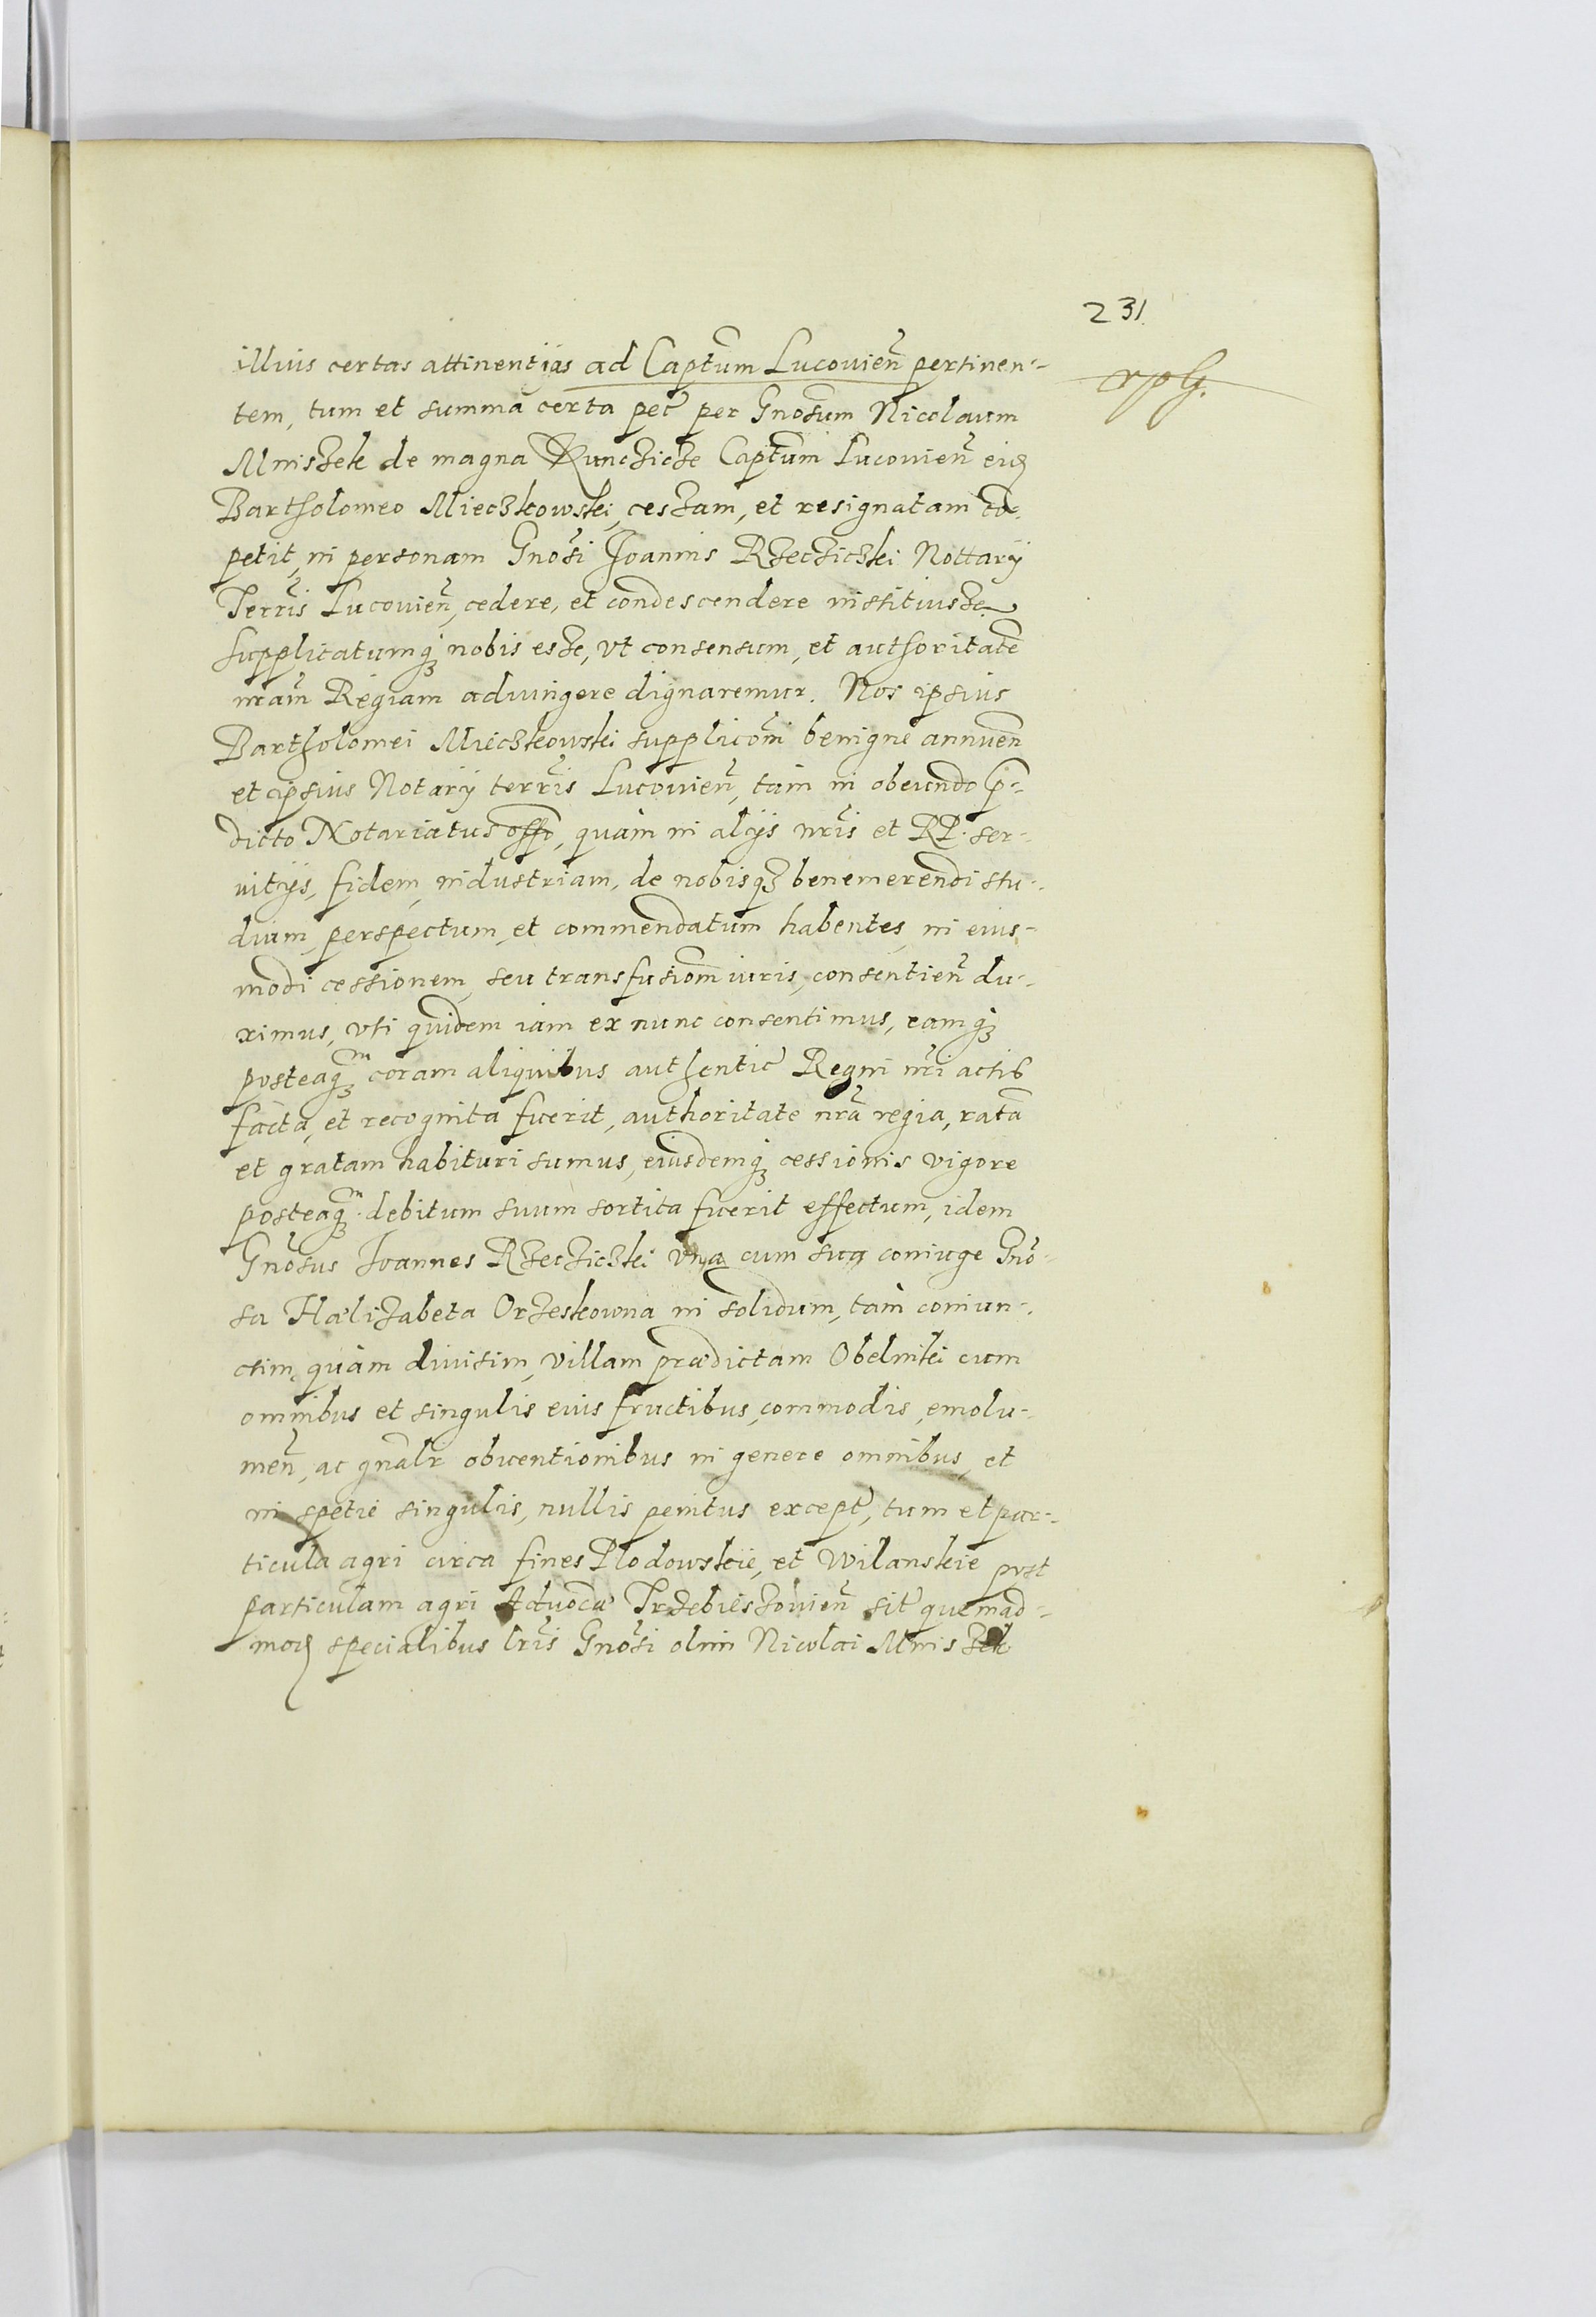 231.
illius certas attinentijas ad Capt̃um Lucovien̄ pertinen-
tem, tum et summâ certa pec̃ per Gnosum Nicolaum
Mniszek de magna Kunczicze Capt̃um Lucovien̄
Bartholomeo Mieczkowski, cessam, et resignatam
petit, in personam Gnosi Joannis Rzecziczki Nottarij
Terrĩs Lucovien̄, cedere, et condescendere instituisse
Supplicatumq; nobis esse, vt consensum, et authoritatē
nram̃ Regiam adiungere dignaremur. Nos ipsius
Bartholomei Mieczkowski supplicõni benigne annuen̄
et ipsius Notarij terrĩs Lucovien̄, tam in obeundo p̄-
dicto Notariatus offo, quàm in alijs nrĩs et RP. ser-
uitijs, fidem, industriam, de nobisq; benemerendi stu-
dium perspectum, et commendatum habentes, in eius-
modi cessionem, seu transfusiom̃ iuris, consentien̄ du-
ximus, vti quidem iam ex nunc consentimus, eamq;
posteaq;m coram aliquibus authentic̃ Regni nrĩ actis
facta, et recognita fuerit, authoritate nrã regia, ratam̃
et gratam habituri sumus, eiusdemq; cessionis vigore
posteaq;m debitum suum sortita fuerit effectum, idem
Gnosus Joannes Rzecziczki vna cum sua coniuge Gno-
sa Hælizabeta Orzeskowna in solidum, tàm coniun-
ctim, quàm diuisim, villam prædictam Obelniki cum
omnibus et singulis eius fructibus, commodis, emolu-
men̄, ac gnãlr obuentionibus in genere omnibus, et
in spetie singulis, nullis penitus except̃, tum et par-
ticula agri circa fines Plodowskie, et Wilanskie post
particulam agri Aduoca͠ Trzebieszouien̄ sit̃ quemad-
mod̃ specialibus lrĩs Gnosi olim Nicolai Mniszek